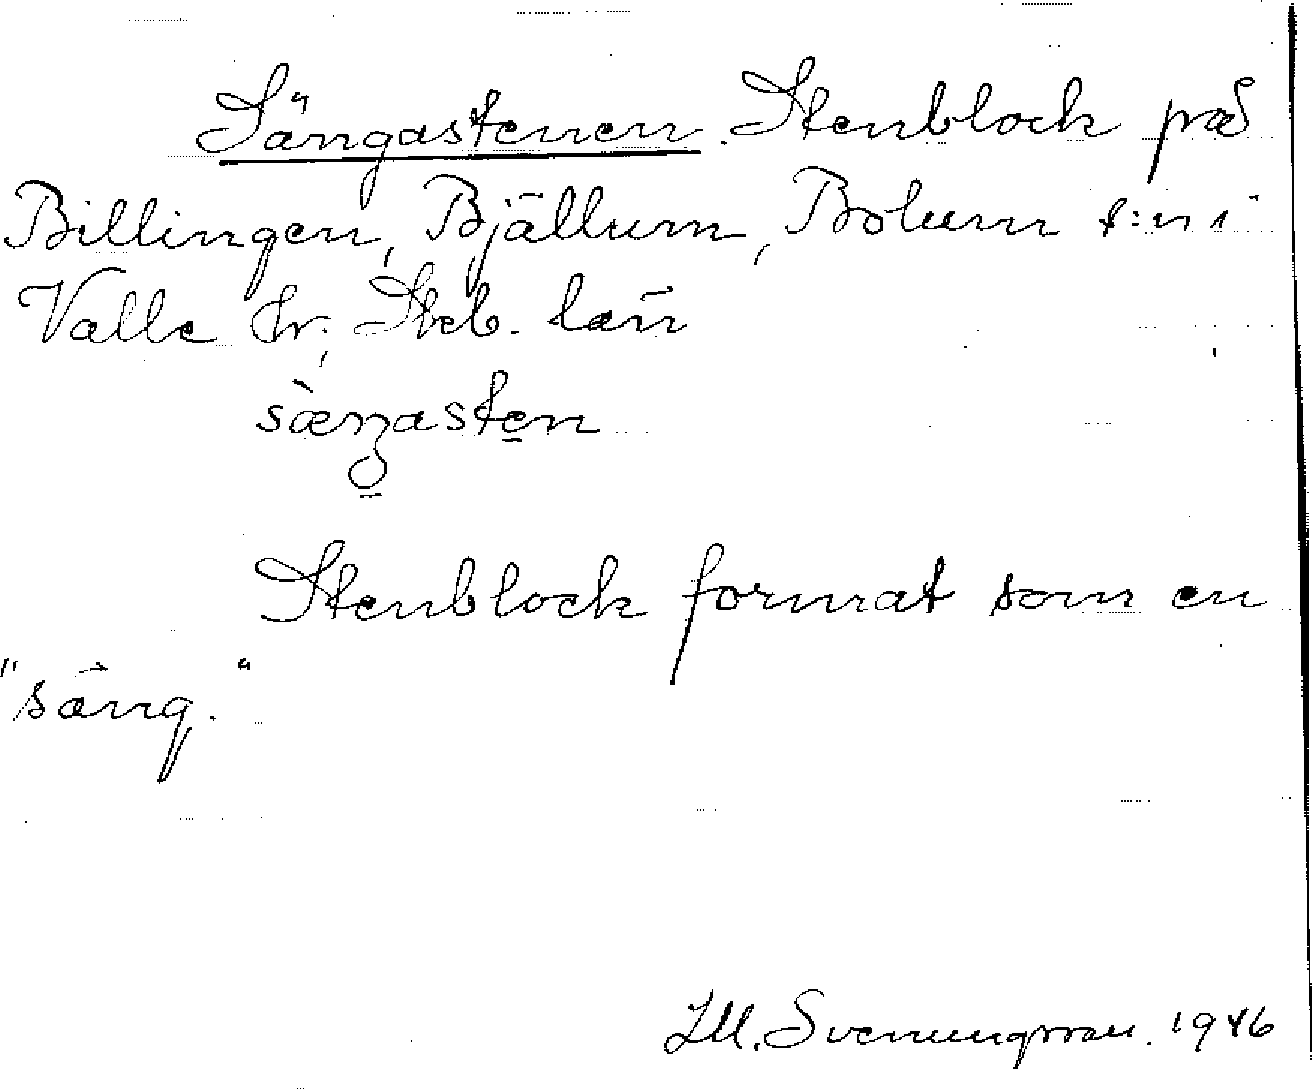 Sängastenen. Stenblock på
Billingen, Bjällum, Bolum s:n i
Valle hr, Skab. län
Stenblock format som en
"säng."
Svenungsson. 1946